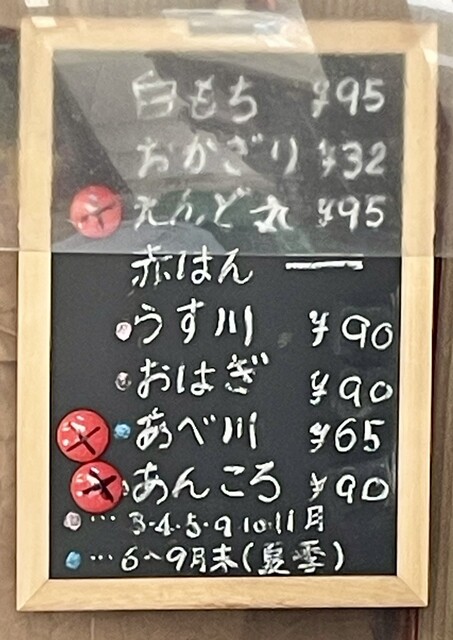 白もち ¥95
おかざり ¥32
× えんど丸 ¥95
赤はん ー
うす川 ¥90
おはぎ ¥90
× あべ川 ¥65
× あんころ ¥90
… 3・4・5・9 10・11月
… 6〜9月末(夏季)